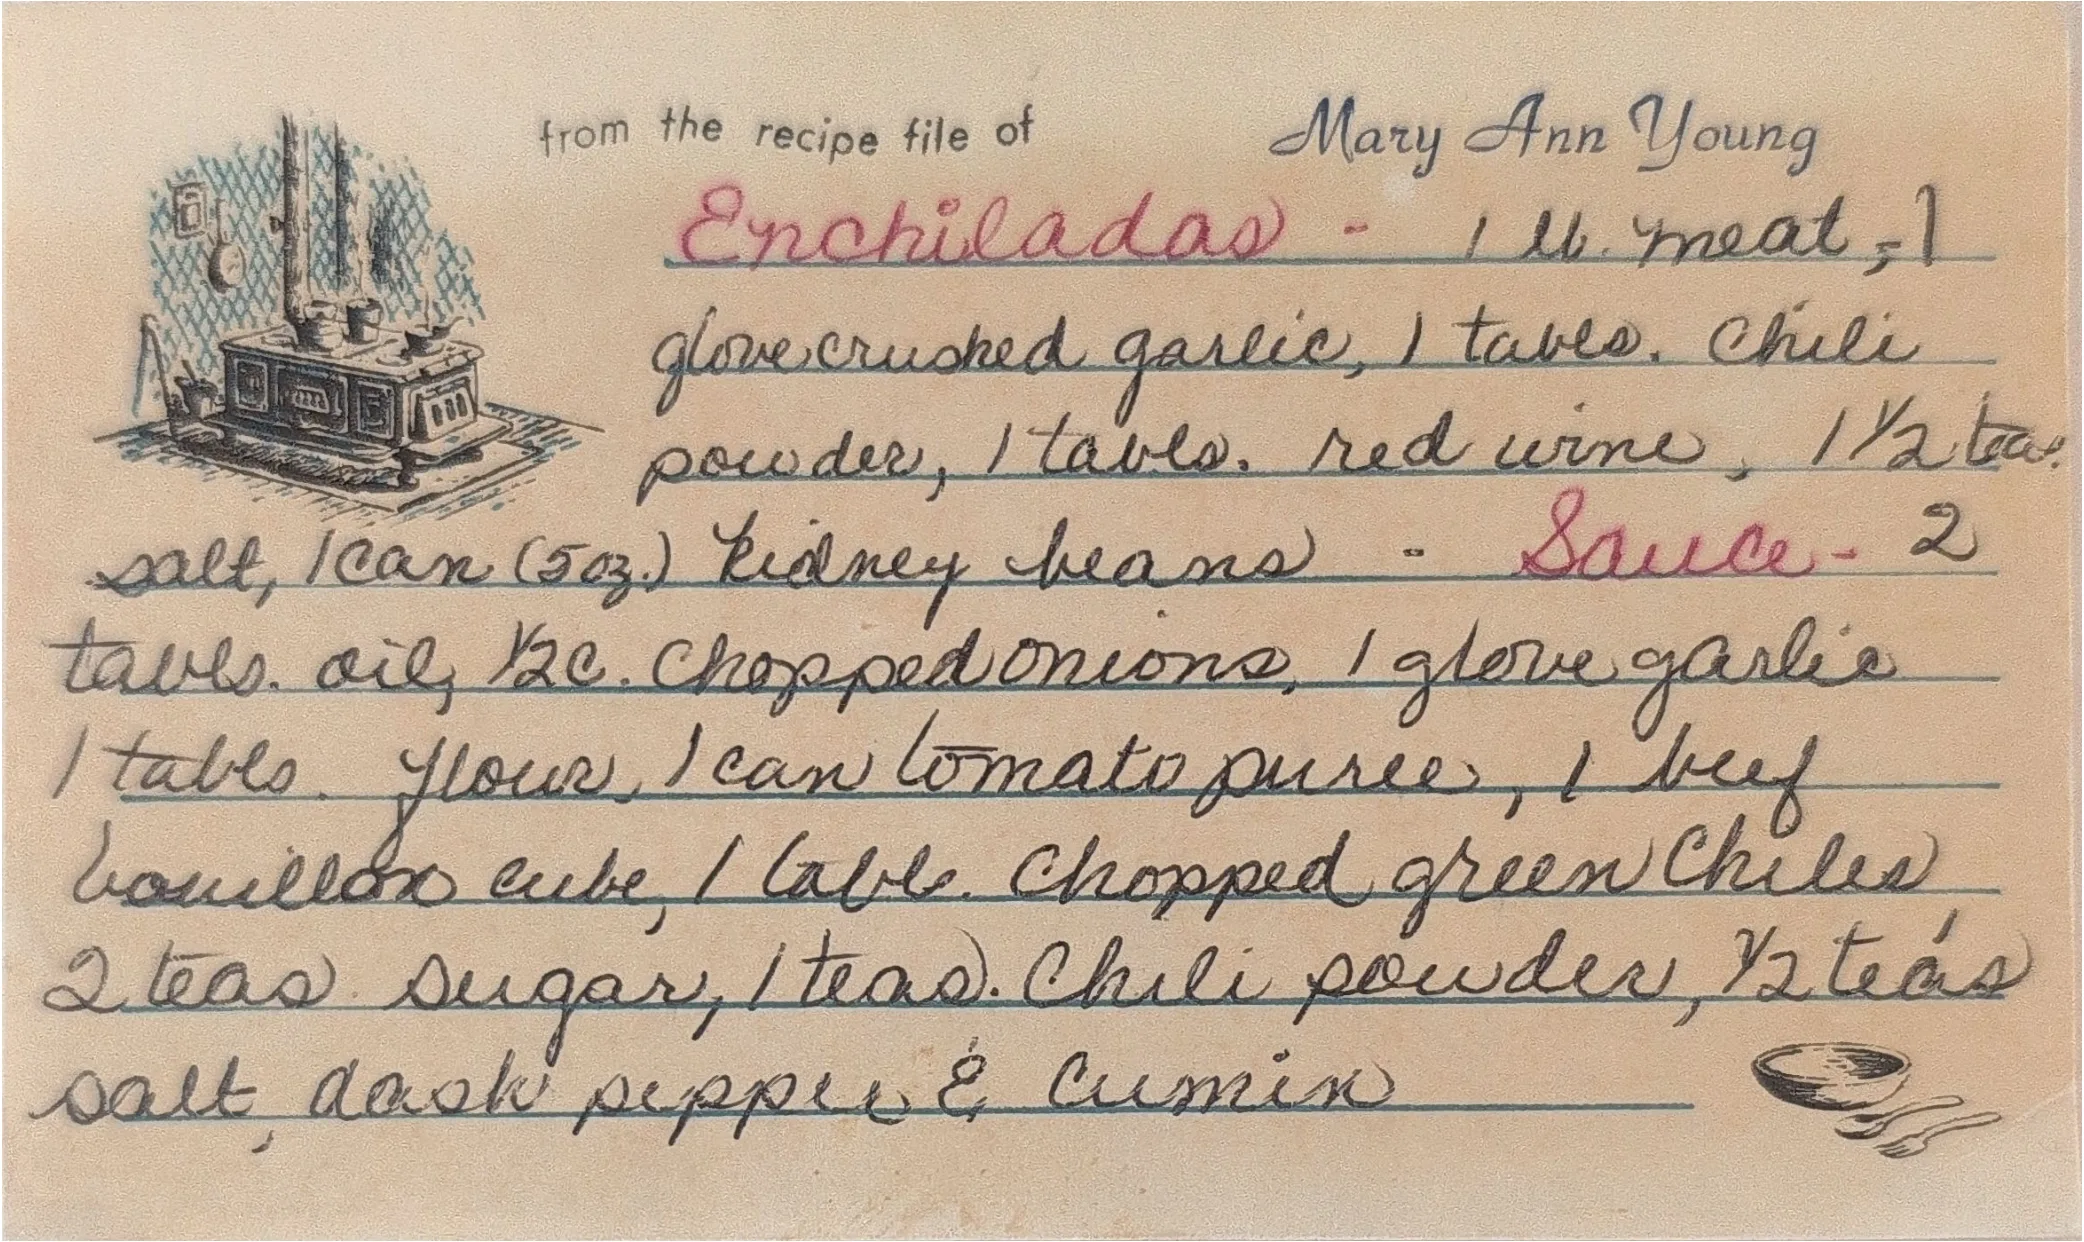 from the recipe file of Mary Ann Young
Enchiladas - 1 lb. meat, 1
glove crushed garlic, 1 tabls. Chili
powder, 1 tabls. red wine, 1 1/2 teas.
salt, 1 can (5 oz.) Kidney beans - Sauce - 2
tabls. oil, 1/2 c. Chopped onions, 1 glove garlic
1 tabls. flour, 1 can tomato puree, 1 beef
bouillon cube, 1 tabls. Chopped green Chiles
2 teas. sugar, 1 teas. Chili powder, 1/2 teas
salt, dash pepper & Cumin